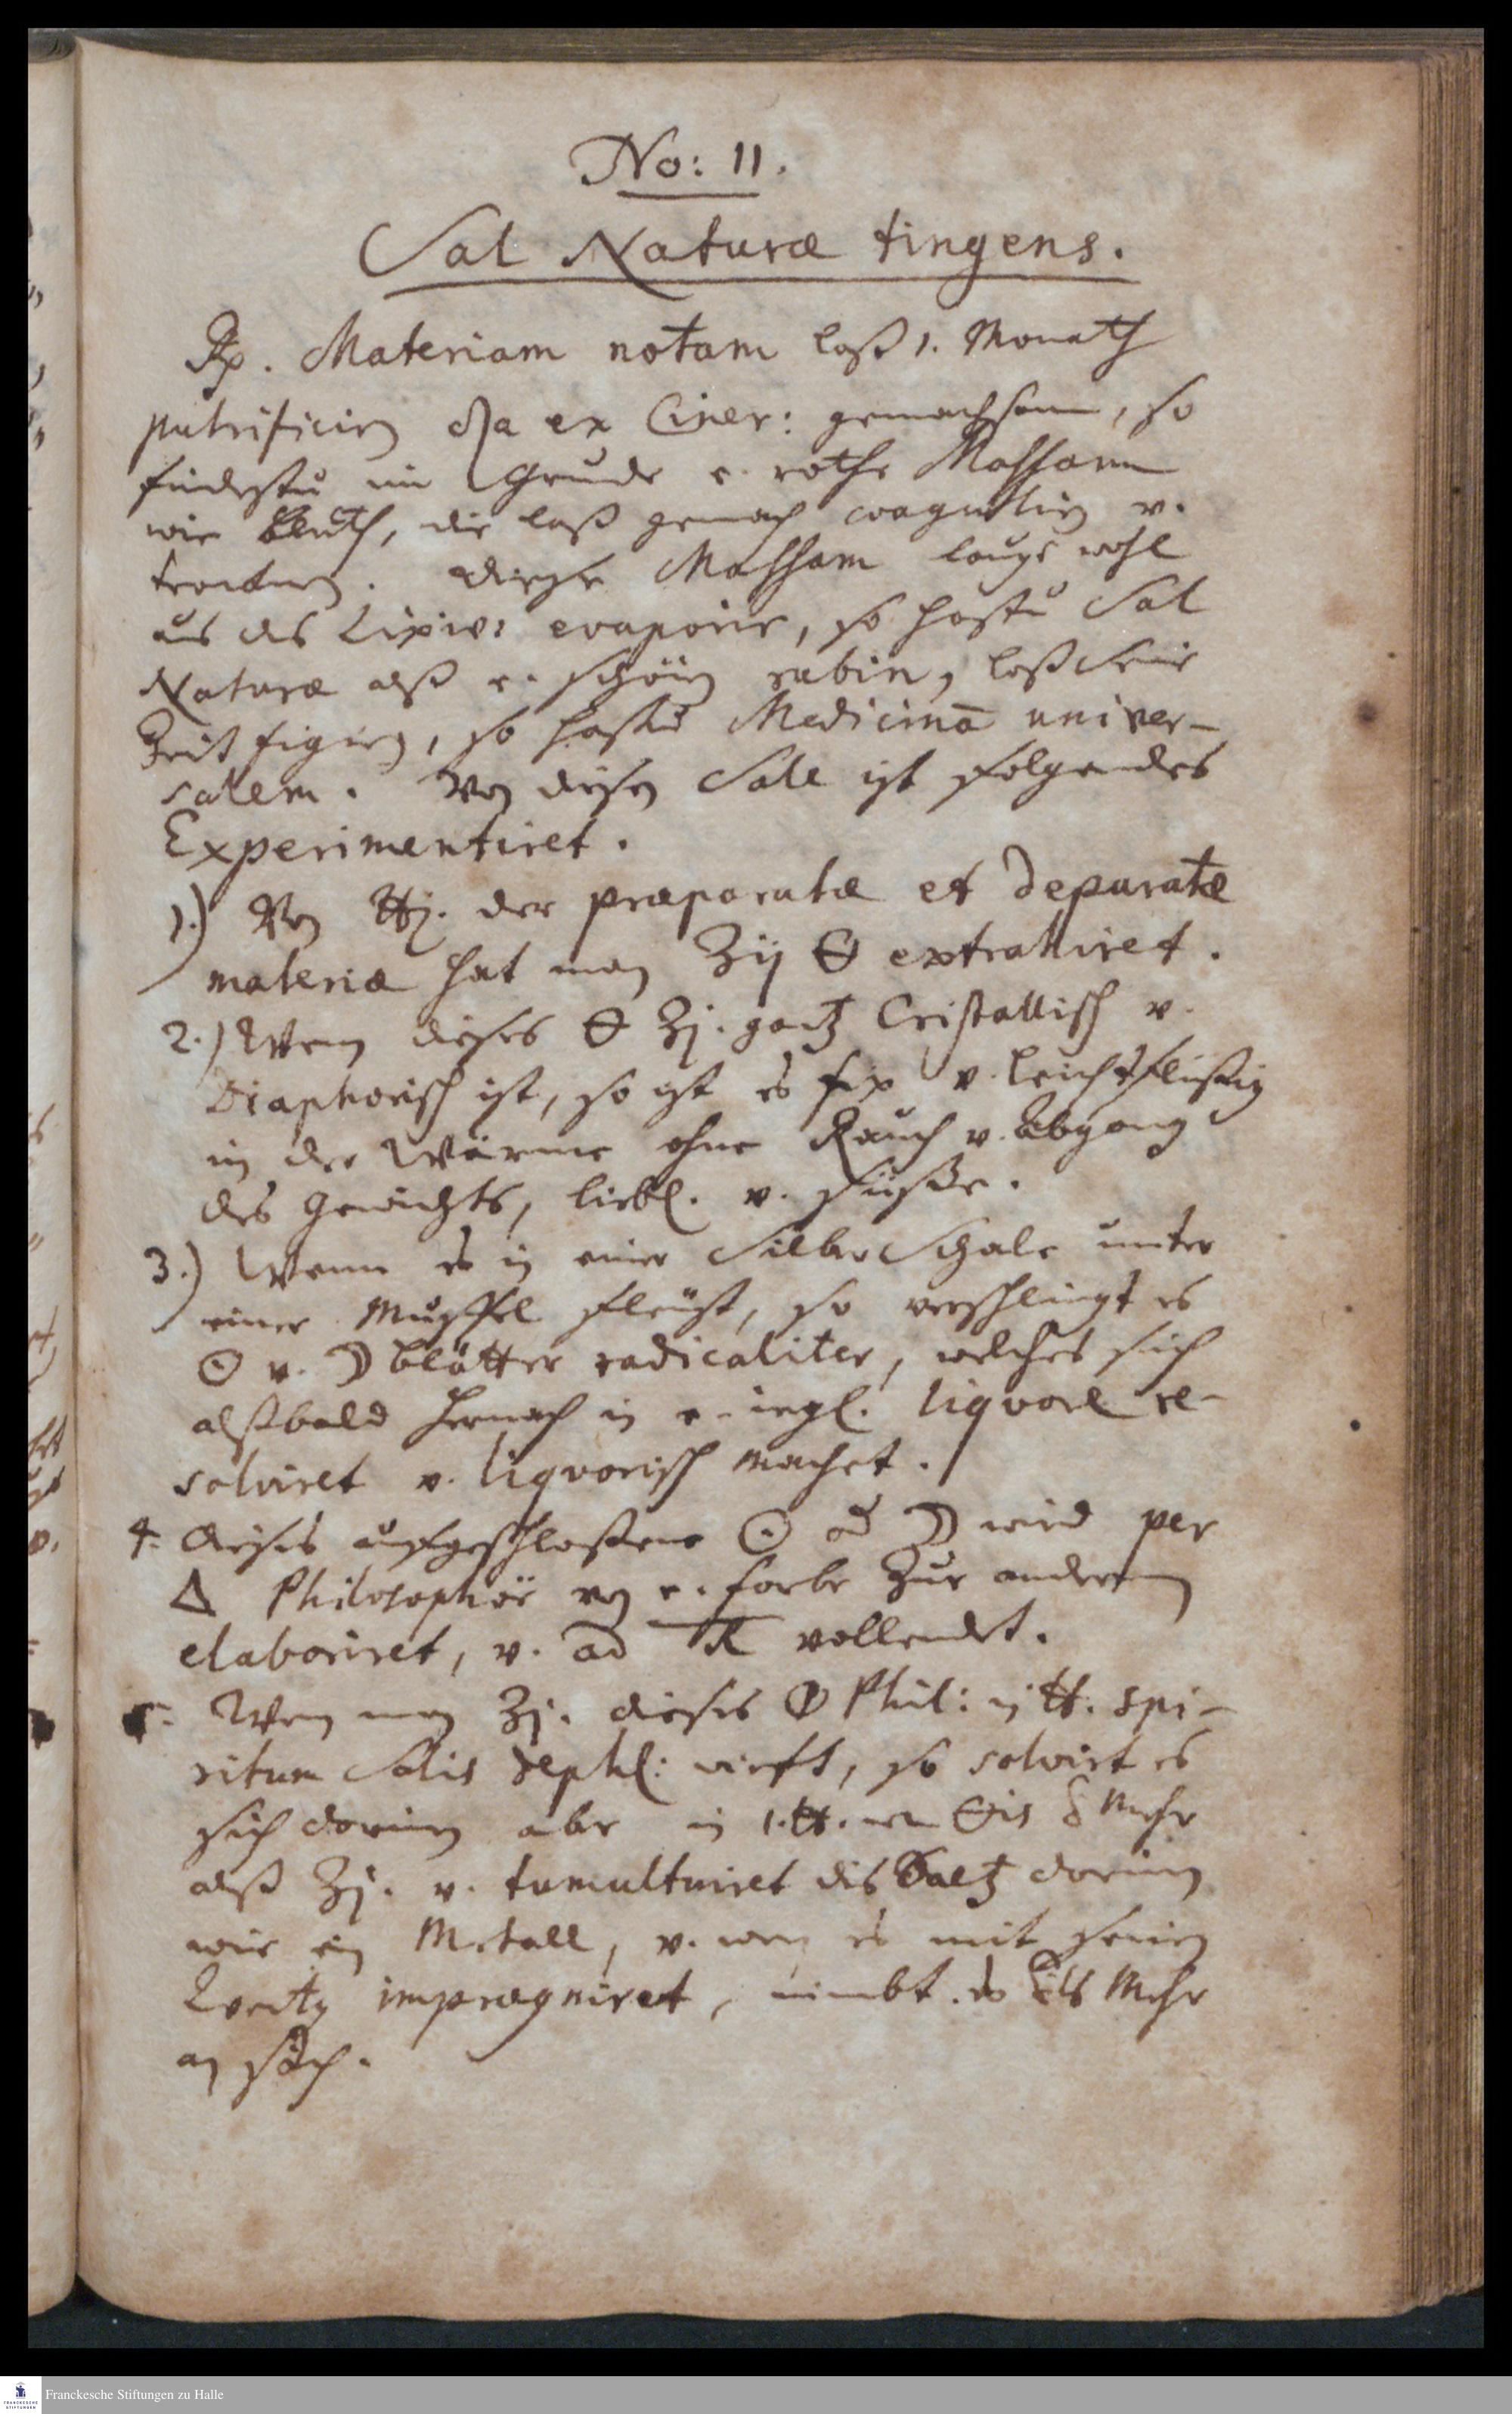 No: 11.
Sal Naturæ tingens.
Rp. Materiam notam laß 1. Monath
putrificirn ex Ciner: gemachsam, so
findestu im Grunde e. rothe Massam
wie Bluth, die laß gemach coagulirn v.
trocknen. Dieße Massam lauge wohl
aus das Lixiv: evaporir, so hastu Sal
Naturæ alß e. schön rubin, laß seine
Zeit figirn, so hastu Medicinā univer-
salem. Von diesen Sale ist folgendes
Experimentiret.
1.) Von ℔j. der præparatæ et depuratæ
materiæ hat man ℥ij 🜔 extrahiret.
2.) Wenn dieses 🜔 ℥j. gantz Cristallisch v.
Diaphorisch ist, so ist es fix v. leichtflüßig
in der Wärme ohne Rauch v. Abgang
des Gewichts, liebl. v. süße.
3.) Wenn es in einer Silber Schale unter
einer Muffel fleust, so verschlingt es
☉ v. ☽ blätter radicaliter, welches sich
alßbald hernach in e. liquore re-
solviret v. liquorisch machet.
4. dieses aufgeschloßene ☉ od ☽ wird per
🜂 Philosophor von e. farbe zur anderen
elaboriret, v. ad R vollendet.
5. Wenn man ℥j. dieses Phil: in ℔. spi-
ritum Salis dephl: wirft, so solvirt es
sich darinn aber in 1. ℔. Mehr
alß ℥j. v. tumultuiret dis Saltz darinn
wie ein Metall, v. wenn es mit seinen
impragniret, nimbt es Mehr
an sich.
Franckesche Stiftungen zu Halle